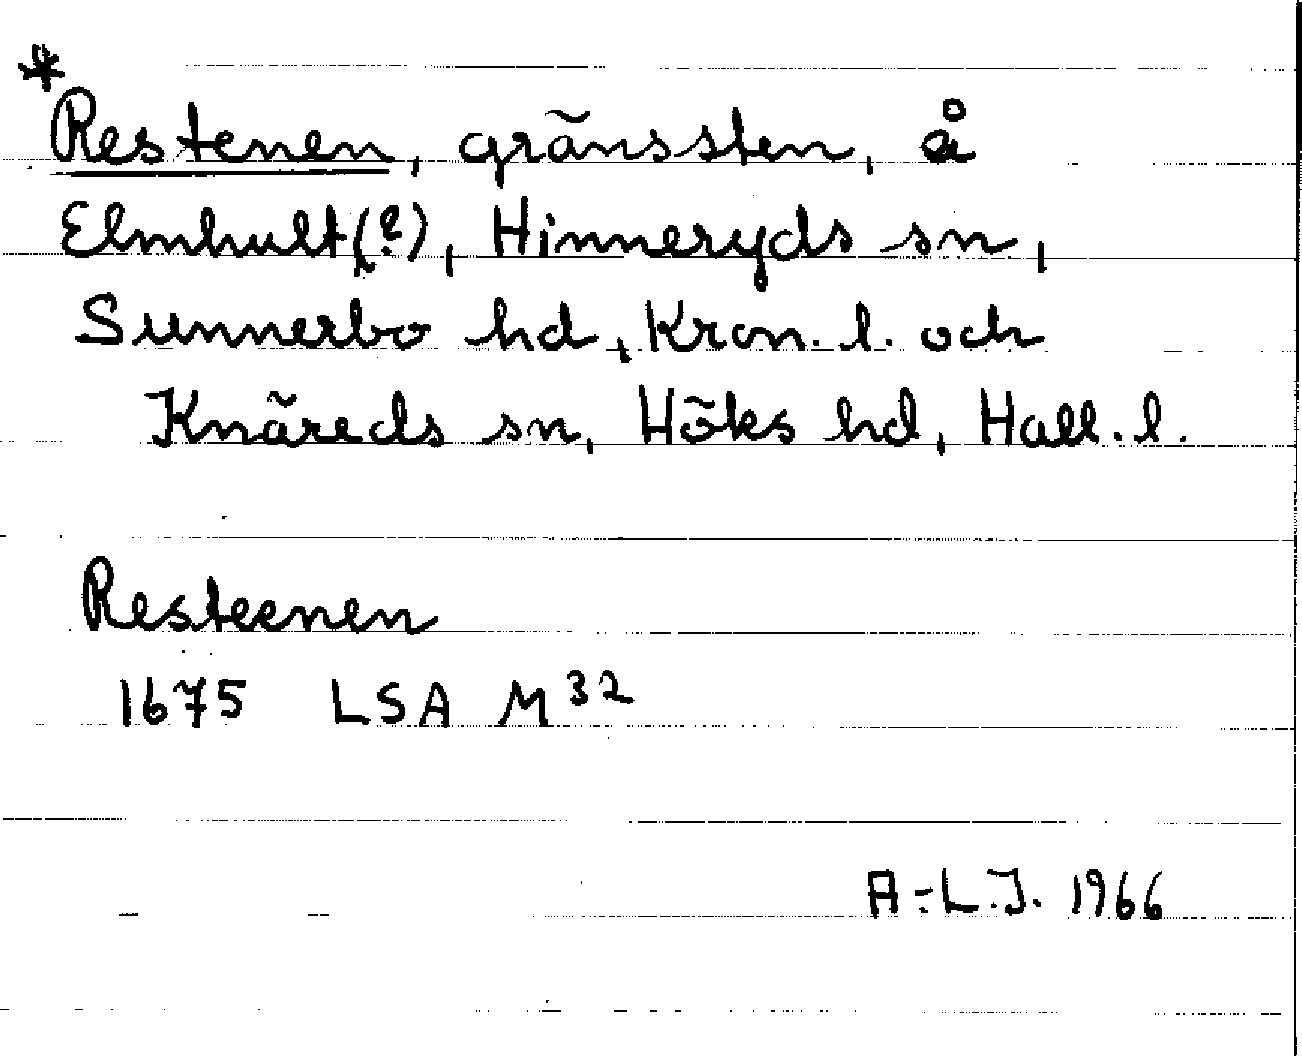 *Restenen, gränssten, å
Elmhult(?), Hinneryds sn,
Sunnerbo hd, Kron. l. och
Knäreds sn, Höks hd, Hall. l.
Resteenen
1675 LSA M 32
A-L.J. 1966